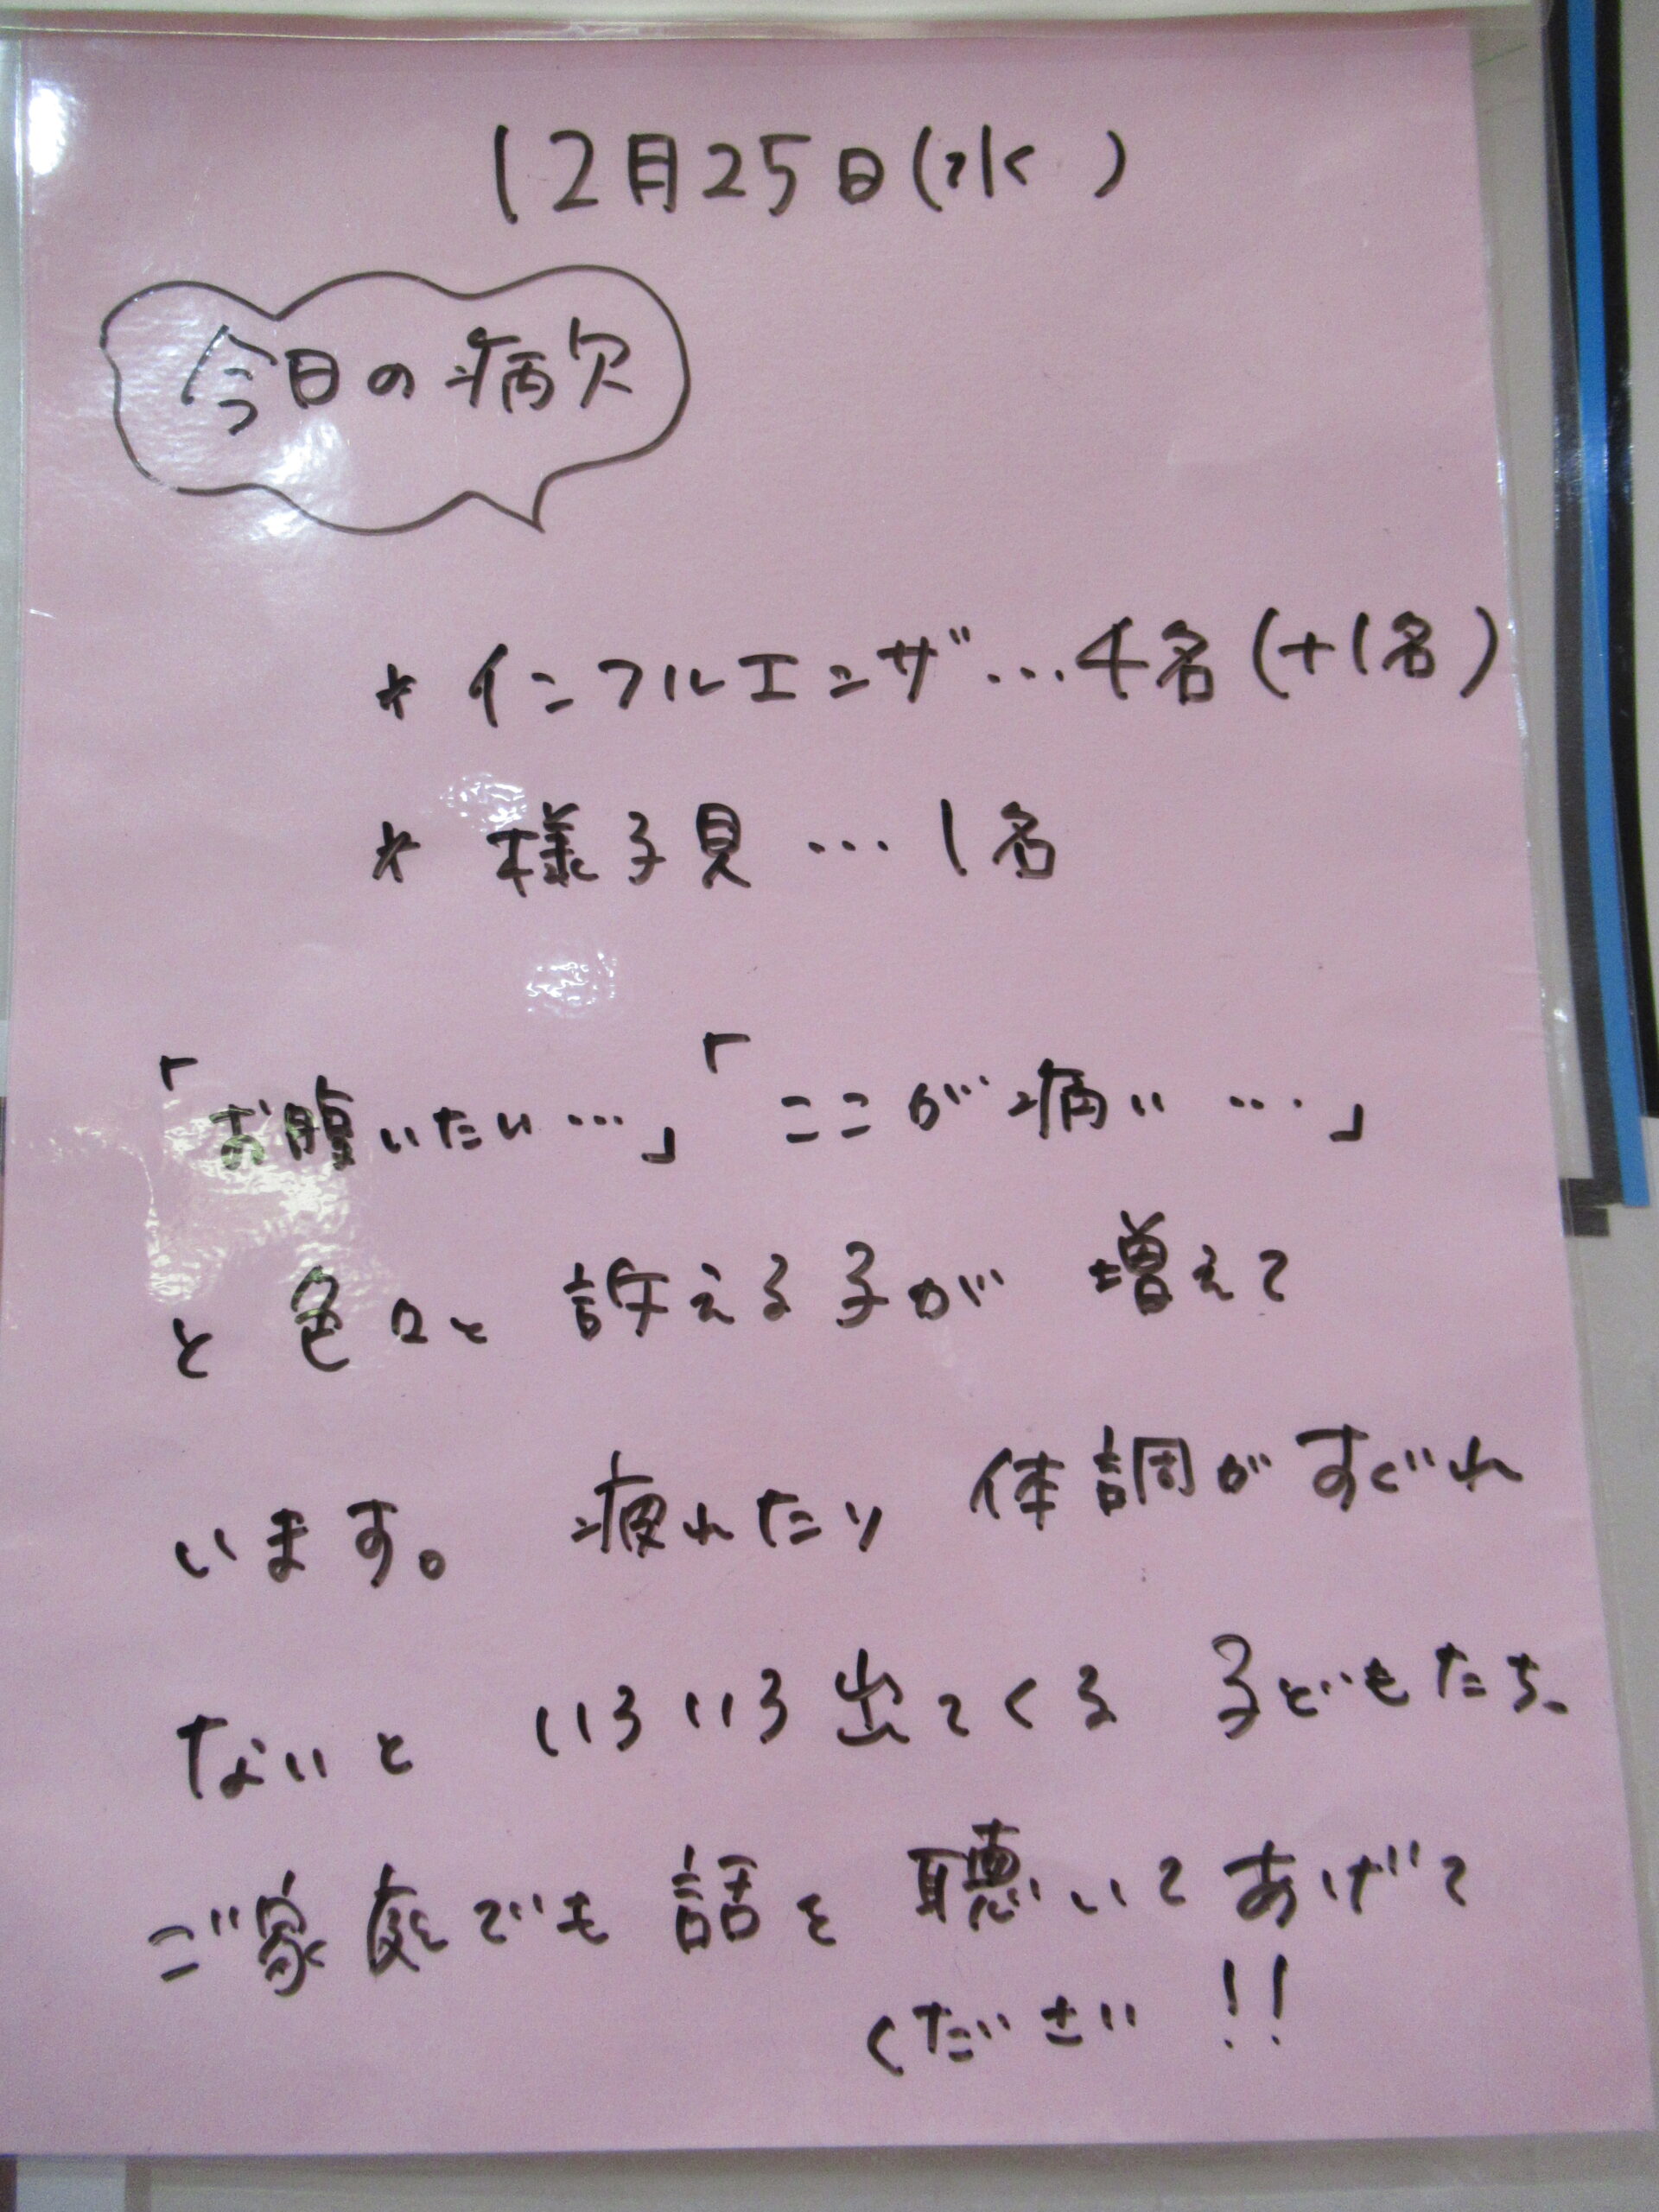 12月25日(水 )
今日の病欠
* インフルエンザ…4名(+1名)
* 様子見…1名
「お腹いたい…」「ここが痛い…」
と色々と訴える子が増えて
います。疲れたり体調がすぐれ
ないといろいろ出てくる子どもたち、
ご家庭でも話を聴いてあげて
ください!!